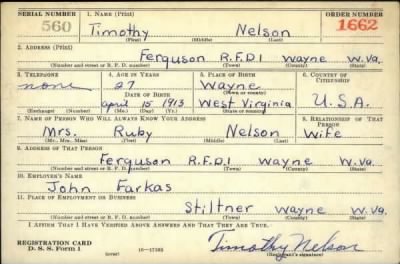 SERIAL NUMBER 1. NAME (Print) ORDER NUMBER
560 Timothy Nelson 1662
(First) (Middle) (Last)
2. ADDRESS (Print)
Ferguson R.F.D1 Wayne W.Va.
(Number and street or R. F. D. number) (Town) (County) (State)
3. TELEPHONE 4. AGE IN YEARS 5. PLACE OF BIRTH 6. COUNTRY OF CITIZENSHIP
none 27 Wayne
(Town or county)
DATE OF BIRTH
April 15 1913 West Virginia U.S.A.
(Exchange) (Number) (Mo.) (Day) (Yr.) (State or country)
7. NAME OF PERSON WHO WILL ALWAYS KNOW YOUR ADDRESS 8. RELATIONSHIP OF THAT PERSON
Mrs. Ruby Nelson Wife
(Mr., Mrs., Miss) (First) (Middle) (Last)
9. ADDRESS OF THAT PERSON
Ferguson R.F.D.1 Wayne W.Va.
(Number and street or R. F. D. number) (Town) (County) (State)
10. EMPLOYER'S NAME
John Farkas
11. PLACE OF EMPLOYMENT OR BUSINESS
Stiltner Wayne W.Va.
(Number and street or R. F. D. number) (Town) (County) (State)
I AFFIRM THAT I HAVE VERIFIED ABOVE ANSWERS AND THAT THEY ARE TRUE.
REGISTRATION CARD
D. S. S. Form 1 (over) Timothy Nelson
(Registrant's signature)